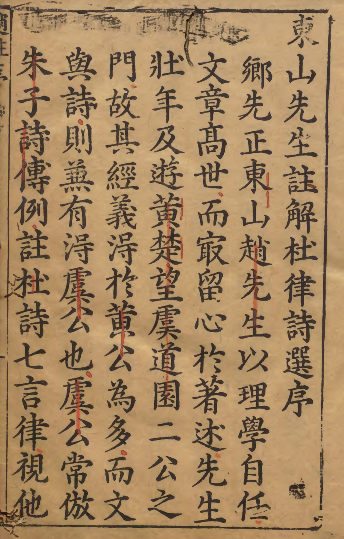 東山先生註解杜律詩選序
鄉先正東山趙先生以理學自任
文章髙世而㝡留心於著述先生
壯年及遊黄楚望虞道園二公之
門故其經義淂於黄公為多而文
與詩則兼有淂虞公也虞公常倣
朱子詩傳例註杜詩七言律視他